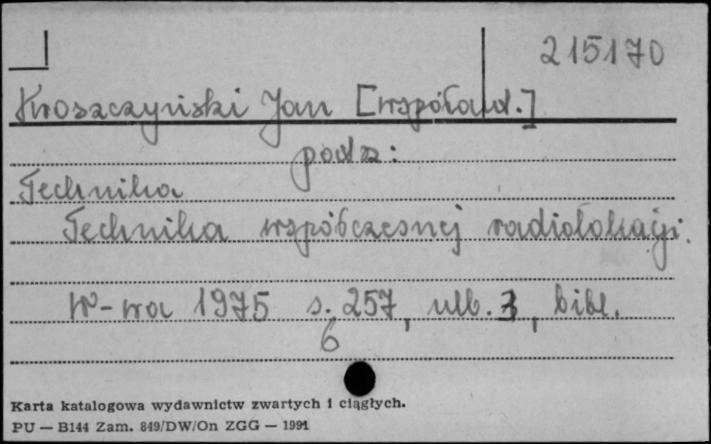 215170
Kroszczyński Jan [współaut.]
podz:
Technika
Technika współczesnej radiolokacji.
W-wa 1975 s. 257, nlb. 3, bibl.
6
Karta katalogowa wydawnictw zwartych i ciągłych.
PU — B144 Zam. 849/DW/On ZGG — 1991